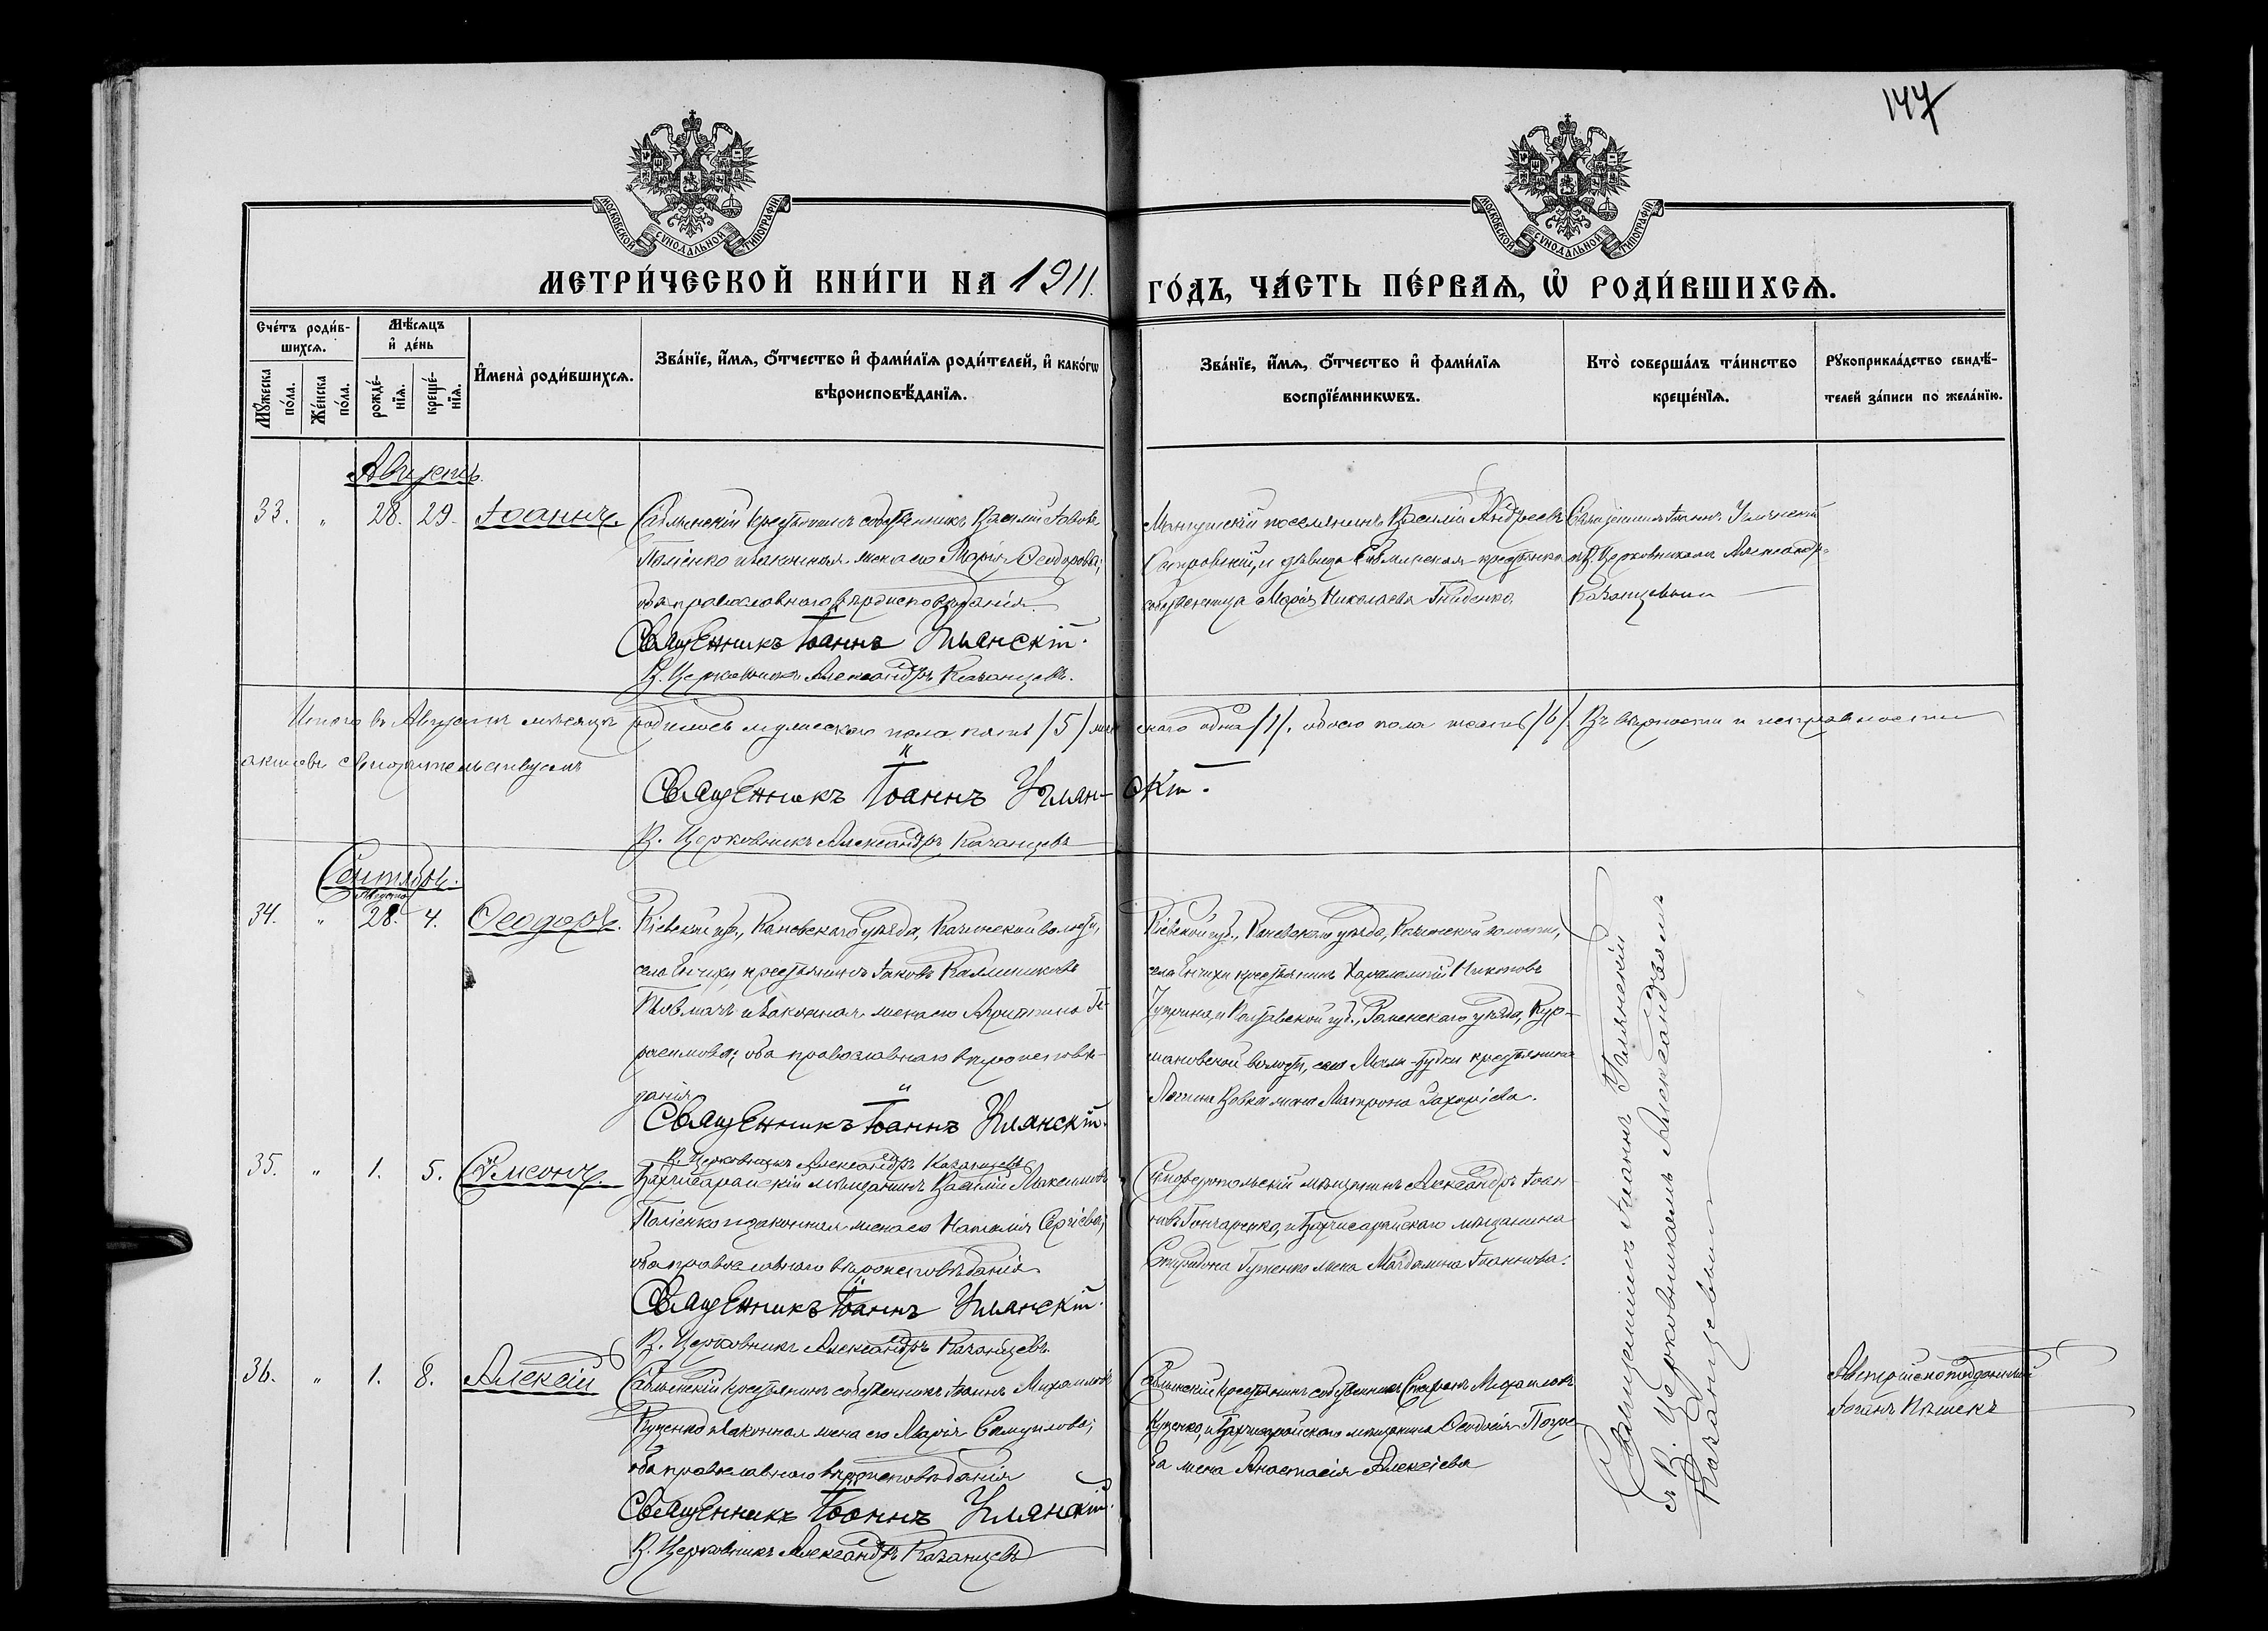 147
МОСКОВСКОЙ СУНОДАЛЬНОЙ ТИПОГРАФІИ
МОСКОВСКОЙ СУНОДАЛЬНОЙ ТИПОГРАФІИ
МЕТРИ́ЧЕСКОЙ КНИ́ГИ НА 1911 ГО́ДЪ, ЧА́СТЬ ПЕ́РВАѦ, Ѡ РОДИ́ВШИХСѦ.
Сче́тъ роди́в-
шихсѧ.
Мꙋ́жеска по́ла.
Же́нска по́ла.
Мѣ́сѧцъ и҆ де́нь
рожде́-
нїѧ.
креще́-
нїѧ.
И҆мена̀ роди́вшихсѧ.
Зва́нїе, и҆́мѧ, о҆́тчество и҆ фами́лїѧ роди́телей, и҆ како́гѡ
вѣроисповѣ́данїѧ.
Зва́нїе, и҆́мѧ, о҆́тчество и҆ фами́лїѧ
воспрїе́мникѡвъ.
Кто̀ соверша́лъ та́инство
креще́нїѧ.
Рꙋкоприкла́дство свидѣ́-
телей за́писи по жела́нїю.
Августъ.
33. " 28. 29. Іоаннъ.
Саблынскій крестьянинъ собственникъ Василій
и законная жена его Марія Ѳеодорова;
оба православнаго вѣроисповѣданія.
Священникъ Іоаннъ Улянскій.
В. Церковникъ Александръ Казанцевъ.
поселянинъ Василій Андреевъ
и дѣвица крестьянка
собственница Марія Николаева Гниденко.
Священникъ Іоаннъ Улянскій
съ В. Церковникомъ Александр-
Казанцевымъ
Итого въ Августѣ мѣсяцѣ родилось мужескаго пола пять /5/ женскаго одна /1/, обоего пола шесть /6/. Въ вѣрности и исправности
актовъ свидѣтельствуемъ
Священникъ Іоаннъ Улянскій.
В. Церковникъ Александръ Казанцевъ
Сентябрь.
Августа
34. " 28. 4. Ѳеодоръ.
Кіевской губ., Каневскаго уѣзда, волости,
села крестьянинъ Іаковъ Каллиниковъ
и законная жена его Ге-
расимова; оба православнаго вѣроисповѣ-
данія
Священникъ Іоаннъ Улянскій.
В. Церковникъ Александръ Казанцевъ
Кіевской губ., Каневскаго уѣзда, волости,
села крестьянинъ Харалампій
и Полтавской губ., Роменскаго уѣзда,
волости, села крестьянина
жена Матрона Захаріева.
35. " 1. 5. Сѵмеонъ.
Бахчисарайскій мѣщанинъ Василій Максимовъ
и законная жена его Наталія Сергіева;
оба православнаго вѣроисповѣданія
Священникъ Іоаннъ Улянскій.
В. Церковникъ Александръ Казанцевъ.
Симферопольскій мѣщанинъ Александръ Іоан-
новъ Гончаренко, и Бахчисарайскаго мѣщанина
Спиридона жена Магдалина Іоаннова.
36. " 1. 8. Алексій
Саблынскій крестьянинъ собственникъ Іоаннъ Михаиловъ
Куценко и законная жена его Марія Самуилова;
оба православнаго вѣроисповѣданія
Священникъ Іоаннъ Улянскій.
В. Церковникъ Александръ Казанцевъ
Саблынскій крестьянинъ собственникъ Стефанъ Михаиловъ
Куценко, и Бахчисарайскаго мѣщанина
жена Анастасія Алексіева
Священникъ Іоаннъ Улянскій
съ В. Церковникомъ Александромъ
Казанцевымъ
Австрійскоподданный